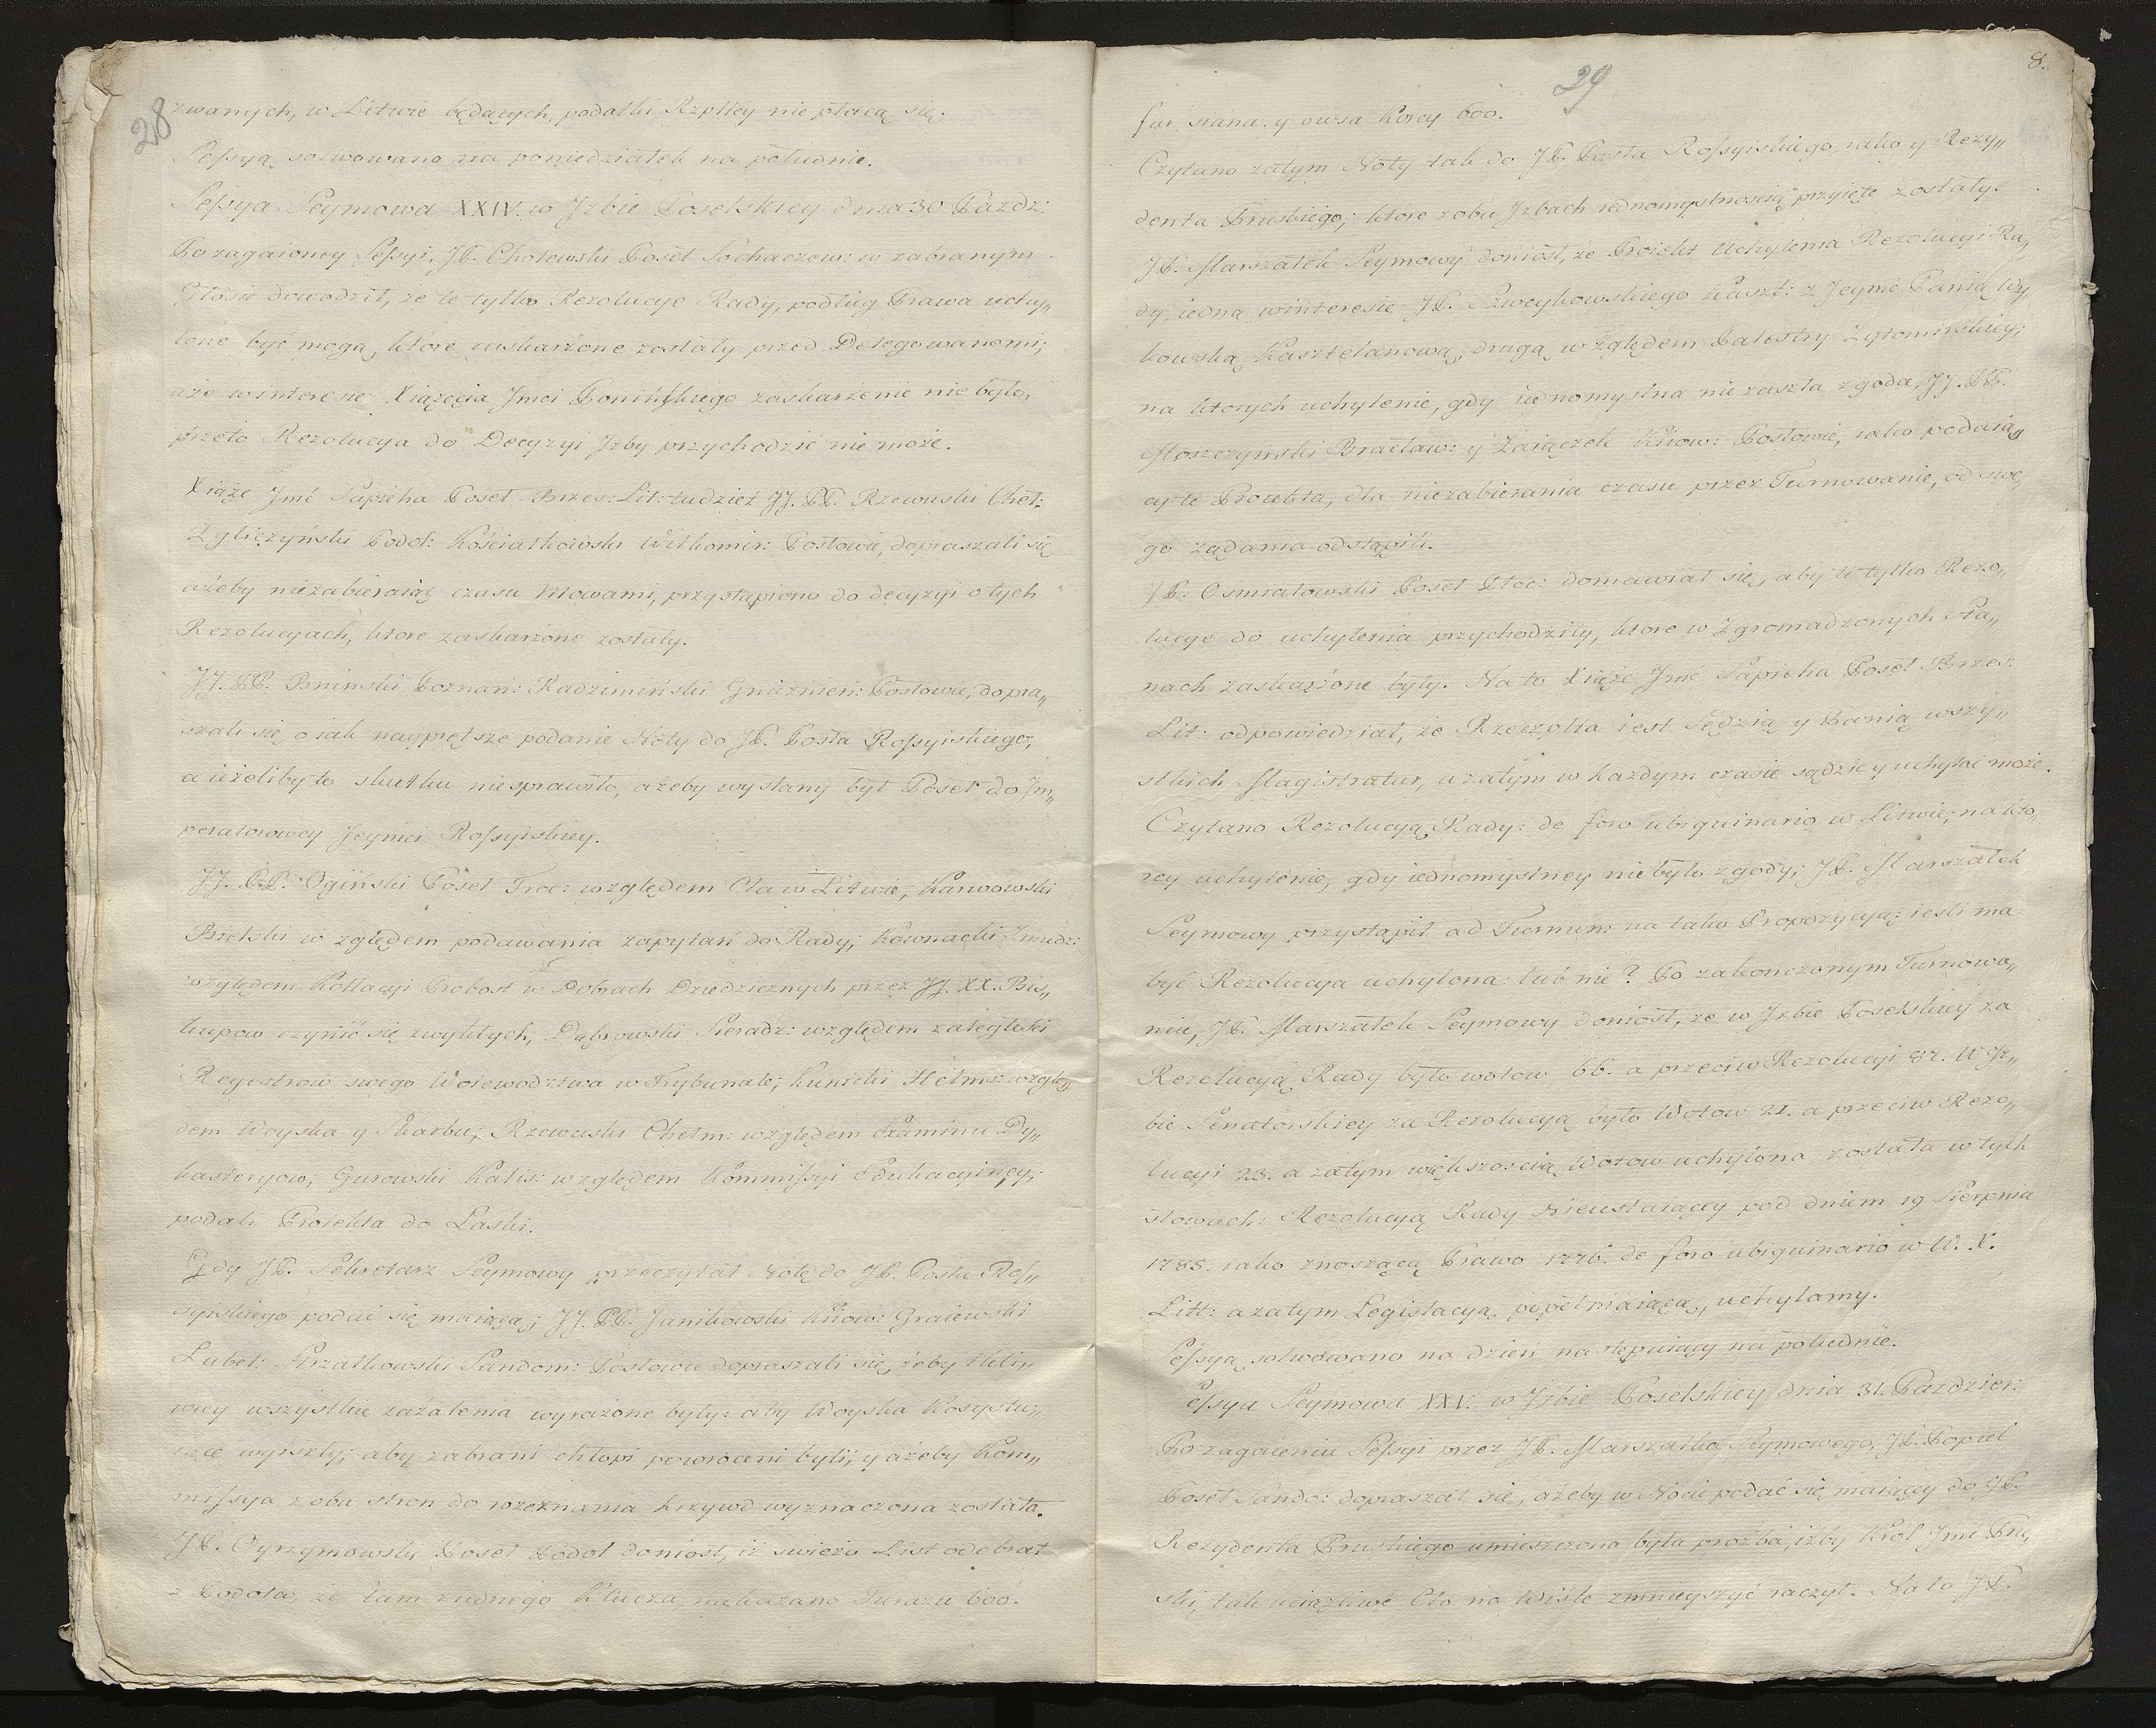 28
zwanych, w Litwie będących, podatki Rzpltey nie płacą się.
Sessyą solwowano na poniedziałek na południe.
Sessya Seymowa XXIV. w Jzbie Poselskiey dnia 30 Paźdz:
Po zagaioney Sessyi, JP. Cholewski Poseł Sochaczew: w zabranym
Głosie dowodził, że te tylko Rezolucye Rady, podług Prawa uchy„
lone być mogą, które zaskarżone zostały przed Delegowanemi;
a że w interesie Xiążęcia Jmci Ponińskiego zaskarżenie nie było,
przeto Rezolucya do Decyzyi Jzby przychodzić nie może.
Xiąże Jmć Sapieha Poseł Brzes: Lit: tudzież JJ. PP. Rzewuski Cheł:
Zyliczyński Podol: Kościałkowski Wiłkomir: Posłowie, dopraszali się
ażeby niezabieraiąc czasu Mowami, przystąpiono do decyzyi o tych
Rezolucyach, ktore zaskarżone zostały.
JJ. PP. Bninski Poznań: Radzimiński Gnieznień: Posłowie, dopra„
szali się o iak nayprętsze podanie Noty do JP. Posła Rossyiskiego,
a ieżeliby to skutku nie sprawiło, ażeby wysłany był Poseł do Jm„
peratorowey Jeymci Rossyiskiey.
JJ. PP. Ogiński Poseł Troc: względem Cła w Litwie; Karwowski
Bielski w zględem podawania zapytań do Rady; Kownacki Zmudz:
względem Kollacyi Probost w Dobrach Dziedzicznych przez JJ. XX. Bis„
kupow czynić się zwykłych, Dąbrowski Sieradz: względem zaległości
Regestrow swego Woiewodztwa w Trybunale; Kunicki Hełms: wzglę„
dem Woyska y Skarbu; Rzewuski Chełm: względem Examinu Dy„
kasteryow; Gurowski Kalis: względem Kommissyi Edukacyiney;
podali Proiekta do Laski.
Gdy JP. Sekretarz Seymowy przeczytał Notę do JP. Posła Ros„
syiskiego podać się maiącą; JJ. PP. Janikowski Kiiow: Graiewski
Lubel: Strzałkowski Sandom: Posłowie dopraszali się, żeby
wszystkie zażalenia wyrażone były: aby Woyska Kosystu„
iące wyrszły; aby zabrani chłopi powróceni byli; y ażeby Kom„
missya z obu stron do rozeznania Krzywd wyznaczona została.
JP. Oyrzymowski Poseł Podol doniosł, iż swieżo List odebrał
z Podola, że tam z iednego Klucza nakazano Furażu 600.
29
8.
fur siana y owsa Korcy 600.
Czytano zatym Noty tak do JP. Posła Rossyiskiego, iako y Rezy„
denta Pruskiego; które z obu Jzbach iednomyslnością przyięte zostały.
JP. Marszałek Seymowy doniosł, że Proiekt Uchylenia Rezolucyi Ra„
dy, iedną w interesie JP. Szweykowskiego Kaszt: z Jeymc Panią Wy„
kowską Kasztelanową, drugą względem Palestry Zgłomirskiey;
na ktorych uchylenie, gdy iednomyslna nie zaszła zgoda, JJ. PP.
Moszczynski Bracław: y Zaiączek Kiiow: Posłowie, iako podaią„
cy te Proiekta, dla niezabierania czasu przez Turnowanie, od swe„
go żądania odstąpili.
JP. Osmiałowski Poseł Płoc: domawiał się, aby te tylko Rezo„
lucye do uchylenia przychodziły, ktore w Zgromadzonych Sta„
nach zaskarżone były. Na to Xiąże Jmć Sapieha Poseł Brzes:
Lit: odpowiedział, że Rzeczplta iest Sędzią y Panią wszy„
stkich Magistratur, a zatym w każdym czasie sądzic y uchylać może.
Czytano Rezolucyą Rady: de foro ubiquinario w Litwie; na kto„
rey uchylenie, gdy iednomyslney nie było zgody; JP. Marszałek
Seymowy przystąpił ad Turnum: na tako Propozycyą: iesli ma
być Rezolucya uchylona: lub nie? Po zakonczonym Turnowa„
niu, JP. Marszałek Seymowy doniosł, ze w Jzbie Poselskiey za
Rezolucyą Rady było wotow 66. a przeciw Rezolucyi 87. W Jz„
bie Senatorskiey za Rezolucyą było Wotow 21. a przeciw Rezo„
lucyi 23. a zatym większością Wotow uchylona została w tych
słowach: Rezolucyą Rady Nieustaiącey pod dniem 19 Sierpnia
1785. iako znoszącą Prawo 1776. de foro ubiquinario w W. X.
Litt: a zatym Legislacyą popełniaiącą, uchylamy.
Sessyą solwowano na dzień następuiący na południe.
Sessya Seymowa XXV. w Jzbie Poselskiey dnia 31. Pazdzier:
Po zagaieniu Sessyi przez JP. Marszałka Seymowego, JP. Popiel
Poseł Sando: dopraszał się, ażeby w Nocie podać się maiącey do JP.
Rezydenta Pruskiego umieszczona była prożba, iżby Krol Jmć Pru„
ski, tak uciążliwe Cło na Wiśle zmnieyszyć raczył. Na to JP.